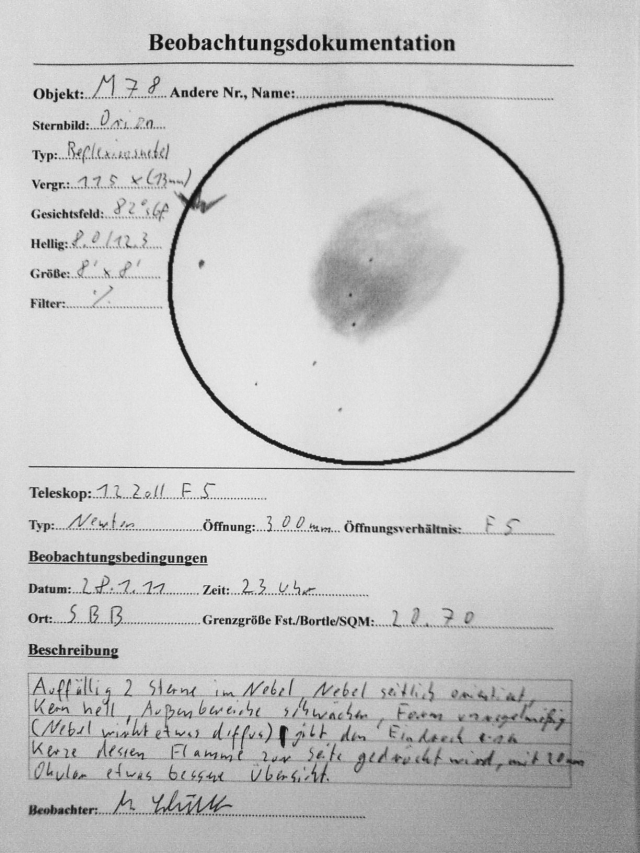 Beobachtungsdokumentation
Objekt: M 78 Andere Nr., Name:
Sternbild: Orion
Typ: Reflexionsnebel
Vergr.: 115 x (13mm)
Gesichtsfeld: 82°
Hellig: 8.0/12.3
Größe: 8' x 8'
Filter: %
Teleskop: 12 Zoll F5
Typ: Newton Öffnung: 300mm Öffnungsverhältnis: F5
Beobachtungsbedingungen
Datum: 28.1.11 Zeit: 23 Uhr
Ort: SBB Grenzgröße Fst./Bortle/SQM: 20.70
Beschreibung
Auffällig 2 Sterne im Nebel, Nebel seitlich orientiert,
Kern hell, Außenbereiche schwächer, Form unregelmäßig
(Nebel wirkt etwas diffus) gibt den Eindruck einer
Kerze dessen Flamme zur Seite gedrückt wird, mit 20mm
Okular etwas bessere Übersicht.
Beobachter: M.